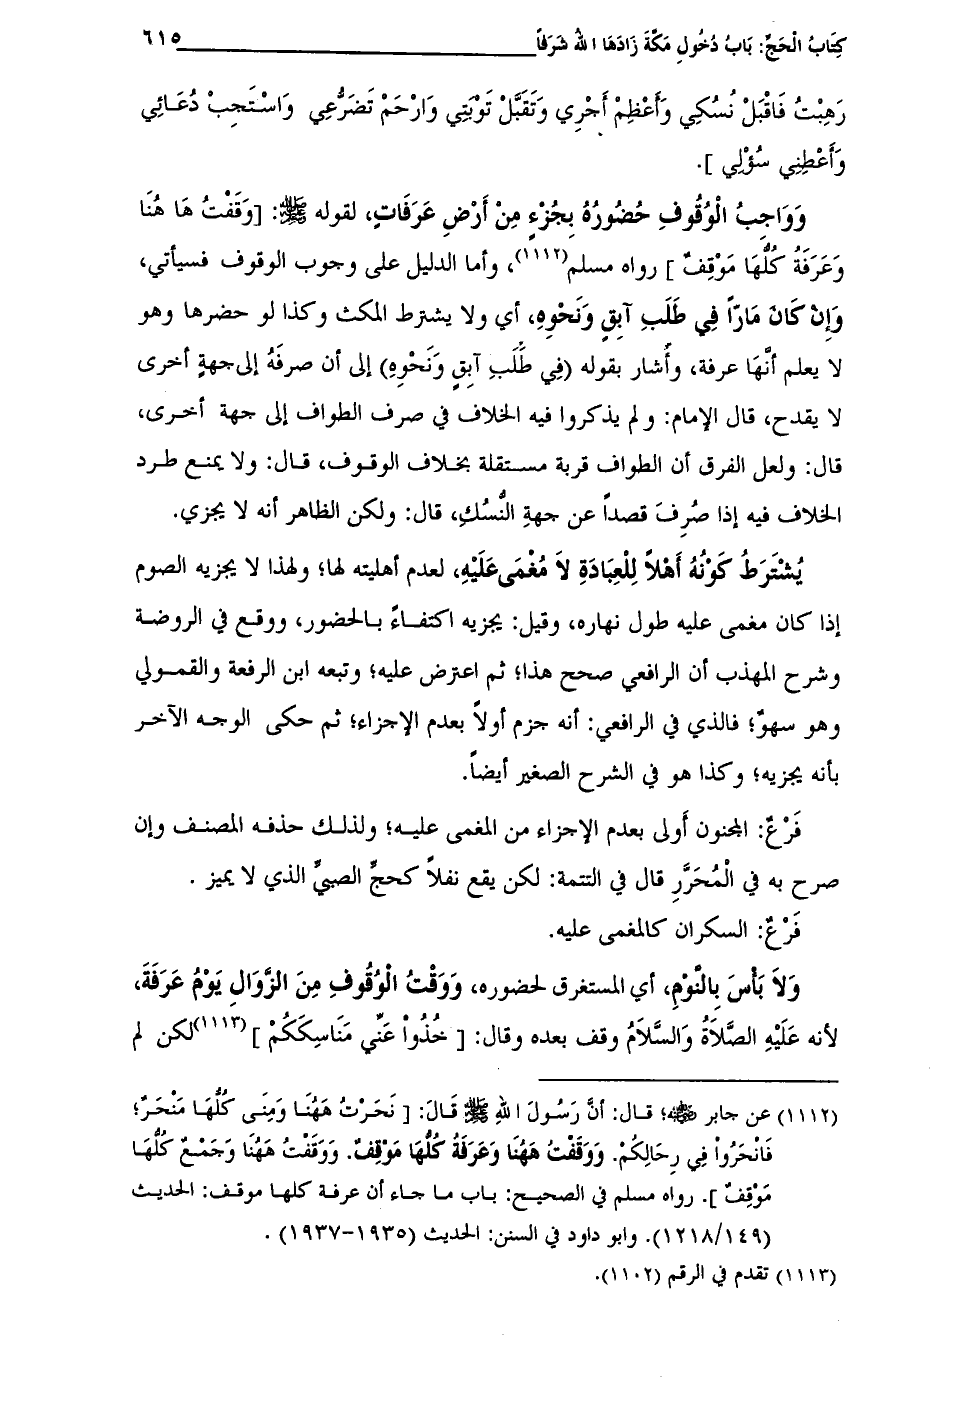 كِتَابُ الْحَجِّ: بَابُ دُخُولِ مَكَّةَ زَادَهَا اللهُ شَرَفاً ٦١٥
رَهِبْتُ فَاقْبَلْ نُسُكِي وَأَعْظِمْ أَجْرِي وَتَقَبَّلْ تَوْبَتِي وَارْحَمْ تَضَرُّعِي وَاسْتَجِبْ دُعَائِي
وَأَعْطِنِي سُؤْلِي ].
وَوَاجِبُ الْوُقُوفِ حُضُورُهُ بِجُزْءٍ مِنْ أَرْضِ عَرَفَاتٍ، لقوله ﷺ: [وَقَفْتُ هَا هُنَا
وَعَرَفَةُ كُلُّهَا مَوْقِفٌ ] رواه مسلم(١١١٢)، وأما الدليل على وجوب الوقوف فسيأتي،
وَإِنْ كَانَ مَارّاً فِي طَلَبِ آبِقٍ وَنَحْوِهِ، أي ولا يشترط المكث وكذا لو حضرها وهو
لا يعلم أنَّهَا عرفة، وأُشار بقوله (فِي طَلَبِ آبِقٍ وَنَحْوِهِ) إلى أن صرفَهُ إلى جهةٍ أخرى
لا يقدح، قال الإمام: ولم يذكروا فيه الخلاف في صرف الطواف إلى جهة أخرى،
قال: ولعل الفرق أن الطواف قربة مستقلة بخلاف الوقوف، قال: ولا يمنع طرد
الخلاف فيه إذا صُرِفَ قصداً عن جهةِ النُّسُكِ، قال: ولكن الظاهر أنه لا يجزي.
يُشْتَرَطُ كَوْنُهُ أَهْلاً لِلْعِبَادَةِ لاَ مُغْمَى عَلَيْهِ، لعدم أهليته لها؛ ولهذا لا يجزيه الصوم
إذا كان مغمى عليه طول نهاره، وقيل: يجزيه اكتفاءً بالحضور، ووقع في الروضة
وشرح المهذب أن الرافعي صحح هذا؛ ثم اعترض عليه؛ وتبعه ابن الرفعة والقمولي
وهو سهوٌ؛ فالذي في الرافعي: أنه جزم أولاً بعدم الإجزاء؛ ثم حكى الوجه الآخر
بأنه يجزيه؛ وكذا هو في الشرح الصغير أيضاً.
فَرْعٌ: المجنون أَولى بعدم الإجزاء من المغمى عليه؛ ولذلك حذفه المصنف وإن
صرح به في الْمُحَرَّرِ قال في التتمة: لكن يقع نفلاً كحجِّ الصبيِّ الذي لا يميز .
فَرْعٌ: السكران كالمغمى عليه.
وَلاَ بَأْسَ بِالنَّوْمِ، أي المستغرق لحضوره، وَوَقْتُ الْوُقُوفِ مِنَ الزَّوَالِ يَوْمُ عَرَفَةَ،
لأنه عَلَيْهِ الصَّلاَةُ وَالسَّلاَمُ وقف بعده وقال: [ خُذُواْ عَنِّي مَنَاسِكَكُمْ ](١١١٣)لكن لم
(١١١٢) عن جابر ﷺ؛ قال: أنَّ رَسُولَ اللهِ ﷺ قَالَ: [ نَحَرْتُ هَهُنَا وَمِنَى كُلُّهَا مَنْحَرٌ؛
فَانْحَرُواْ فِي رِحَالِكُمْ. وَوَقَفْتُ هَهُنَا وَعَرَفَةُ كُلُّهَا مَوْقِفٌ. وَوَقَفْتُ هَهُنَا وَجَمْعٌ كُلُّهَا
مَوْقِفٌ ]. رواه مسلم في الصحيح: باب ما جاء أن عرفة كلها موقف: الحديث
(١٢١٨/١٤٩). وابو داود في السنن: الحديث (١٩٣٥-١٩٣٧) .
(١١١٣) تقدم في الرقم (١١٠٢).